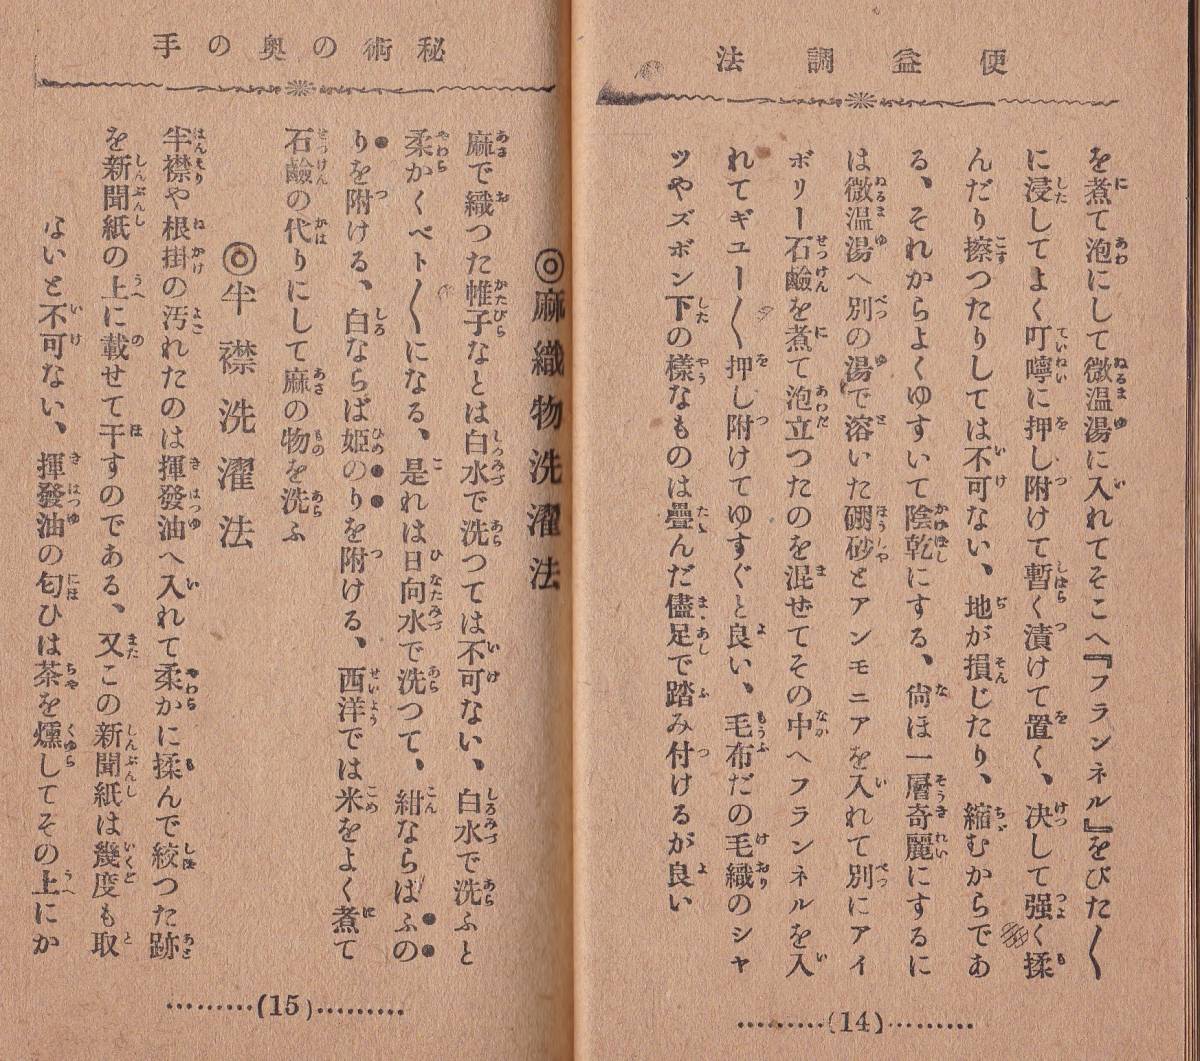 便益調法
を煮て泡にして微温湯に入れてそこへ『フランネル』をびた〱
に浸してよく叮嚀に押し附けて暫く漬けて置く、决して强く揉
んだり擦つたりしては不可ない、地が損じたり、縮むからであ
る、それからよくゆすいで陰乾にする、尙ほ一層奇麗にするに
は微温湯へ別の湯で溶いた硼砂とアンモニアを入れて別にアイ
ボリー石鹼を煮て泡立つたのを混ぜてその中へフランネルを入
れてギユー〱押し附けてゆすぐと良い、毛布だの毛織のシヤ
ツやズボン下の樣なものは疊んだ儘足で踏み付けるが良い
(14)
秘術の奥の手
◎麻織物洗濯法
麻で織つた帷子なとは白水で洗つては不可ない、白水で洗ふと
柔かくベト〱になる、是れは日向水で洗つて、紺ならばふの
りを附ける、白ならば姫のりを附ける、西洋では米をよく煮て
石鹼の代りにして麻の物を洗ふ
◎半襟洗濯法
半襟や根掛の汚れたのは揮發油へ入れて柔かに揉んで絞つた跡
を新聞紙の上に載せて干すのである、又この新聞紙は幾度も取
ないと不可ない、揮發油の匂ひは茶を燻してその上にか
(15)